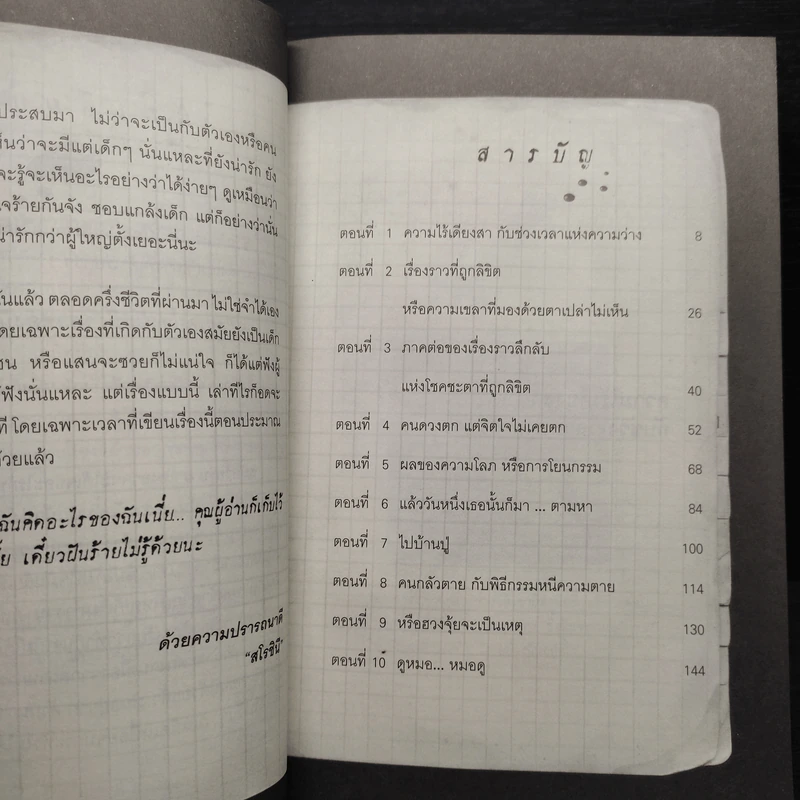 ประสบมา ไม่ว่าจะเป็นกับตัวเองหรือคน
ห็นว่าจะมีแต่เด็กๆ นั่นแหละที่ยังน่ารัก ยัง
จะรู้จะเห็นอะไรอย่างว่าได้ง่ายๆ ดูเหมือนว่า
จร้ายกันจัง ชอบแกล้งเด็ก แต่ก็อย่างว่านั่น
น่ารักกว่าผู้ใหญ่ตั้งเยอะนี่นะ
นแล้ว ตลอดครึ่งชีวิตที่ผ่านมา ไม่ใช่จำได้เอง
ดยเฉพาะเรื่องที่เกิดกับตัวเองสมัยยังเป็นเด็ก
ซน หรือแสนจะซวยก็ไม่แน่ใจ ก็ได้แต่ฟังผู้
ฟังนั่นแหละ แต่เรื่องแบบนี้ เล่าทีไรก็อดจะ
ที โดยเฉพาะเวลาที่เขียนเรื่องนี้ตอนประมาณ
ด้วยแล้ว
ฉันคิดอะไรของฉันเนี่ย... คุณผู้อ่านก็เก็บไว้
ย เดี๋ยวฝันร้ายไม่รู้ด้วยนะ
ด้วยความปรารถนาดี
"สโรชินี"
สารบัญ
ตอนที่ 1 ความไร้เดียงสา กับช่วงเวลาแห่งความว่าง 8
ตอนที่ 2 เรื่องราวที่ถูกลิขิต
หรือความเขลาที่มองด้วยตาเปล่าไม่เห็น 26
ตอนที่ 3 ภาคต่อของเรื่องราวลึกลับ
แห่งโชคชะตาที่ถูกลิขิต 40
ตอนที่ 4 คนดวงตก แต่จิตใจไม่เคยตก 52
ตอนที่ 5 ผลของความโลภ หรือการโยนกรรม 68
ตอนที่ 6 แล้ววันหนึ่งเธอนั้นก็มา ... ตามหา 84
ตอนที่ 7 ไปบ้านปู่ 100
ตอนที่ 8 คนกลัวตาย กับพิธีกรรมหนีความตาย 114
ตอนที่ 9 หรือฮวงจุ้ยจะเป็นเหตุ 130
ตอนที่ 10 ดูหมอ... หมอดู 144